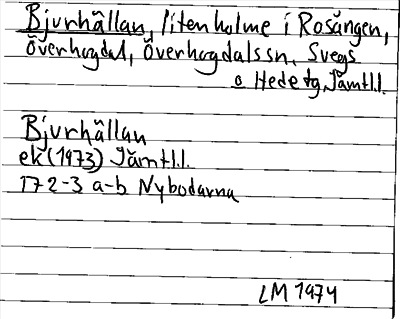 Bjurhållan, liten holme i Rosången,
Överhogdal, Överhogdalssn, Svegs
o Hede tg, Jämtl.l.
Bjurhållan
ek (1973) Jämtl.l.
172-3 a-b Nybodarna
LM 1974